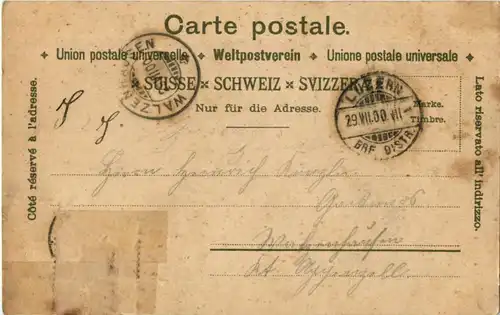 Carte postale.
Union postale universelle ✦ Weltpostverein ✦ Unione postale universale
SUISSE × SCHWEIZ × SVIZZERA
Nur für die Adresse.
Côté réservé à l'adresse.
Lato riservato all'indirizzo.
Marke.
Timbre.
WALZENHAUSEN
LUZERN
29.VII.00.VII
BRF. DISTR.
Herrn Heinrich
Walzenhausen
Kt. Appenzell